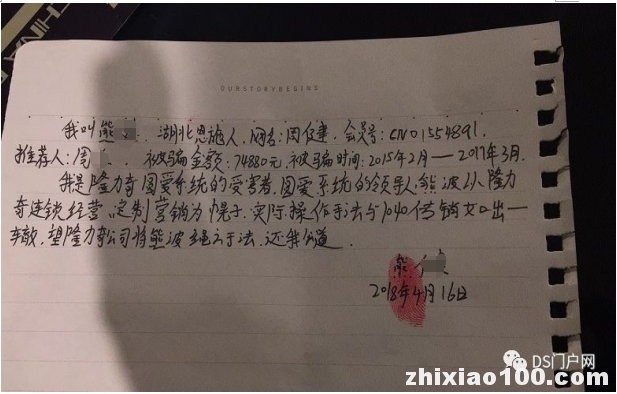 OURSTORYBEGINS
我叫熊 湖北恩施人,网名:周健, 会员号:CN01554891.
推荐人:周 被骗金额:74880元 被骗时间:2015年2月—2017年3月.
我是隆力奇圆爱系统的受害者,圆爱系统的领导人熊波从隆力
奇连锁经营、定制营销为幌子.实际操作手法与1040传销如出一
辙,望隆力奇公司将熊波绳之于法,还我公道
熊
2018年4月16日
DS门户网
zhixiao100.com